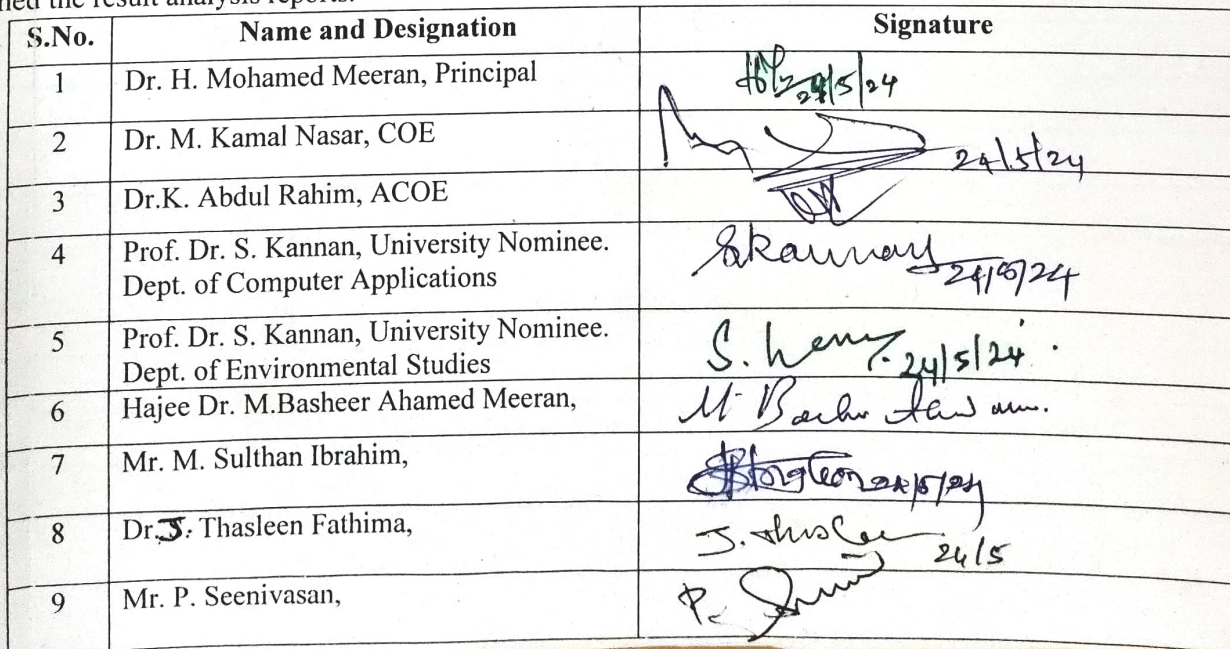 the result analysis reports.
S.No. Name and Designation Signature
1 Dr. H. Mohamed Meeran, Principal 24/5/24
2 Dr. M. Kamal Nasar, COE 24/5/24
3 Dr.K. Abdul Rahim, ACOE
4 Prof. Dr. S. Kannan, University Nominee.
Dept. of Computer Applications Skannan 24/5/24
5 Prof. Dr. S. Kannan, University Nominee.
Dept. of Environmental Studies S. 24/5/24.
6 Hajee Dr. M.Basheer Ahamed Meeran, M.
7 Mr. M. Sulthan Ibrahim, 24/5/24
8 Dr.J. Thasleen Fathima, J. 24/5
9 Mr. P. Seenivasan, P.